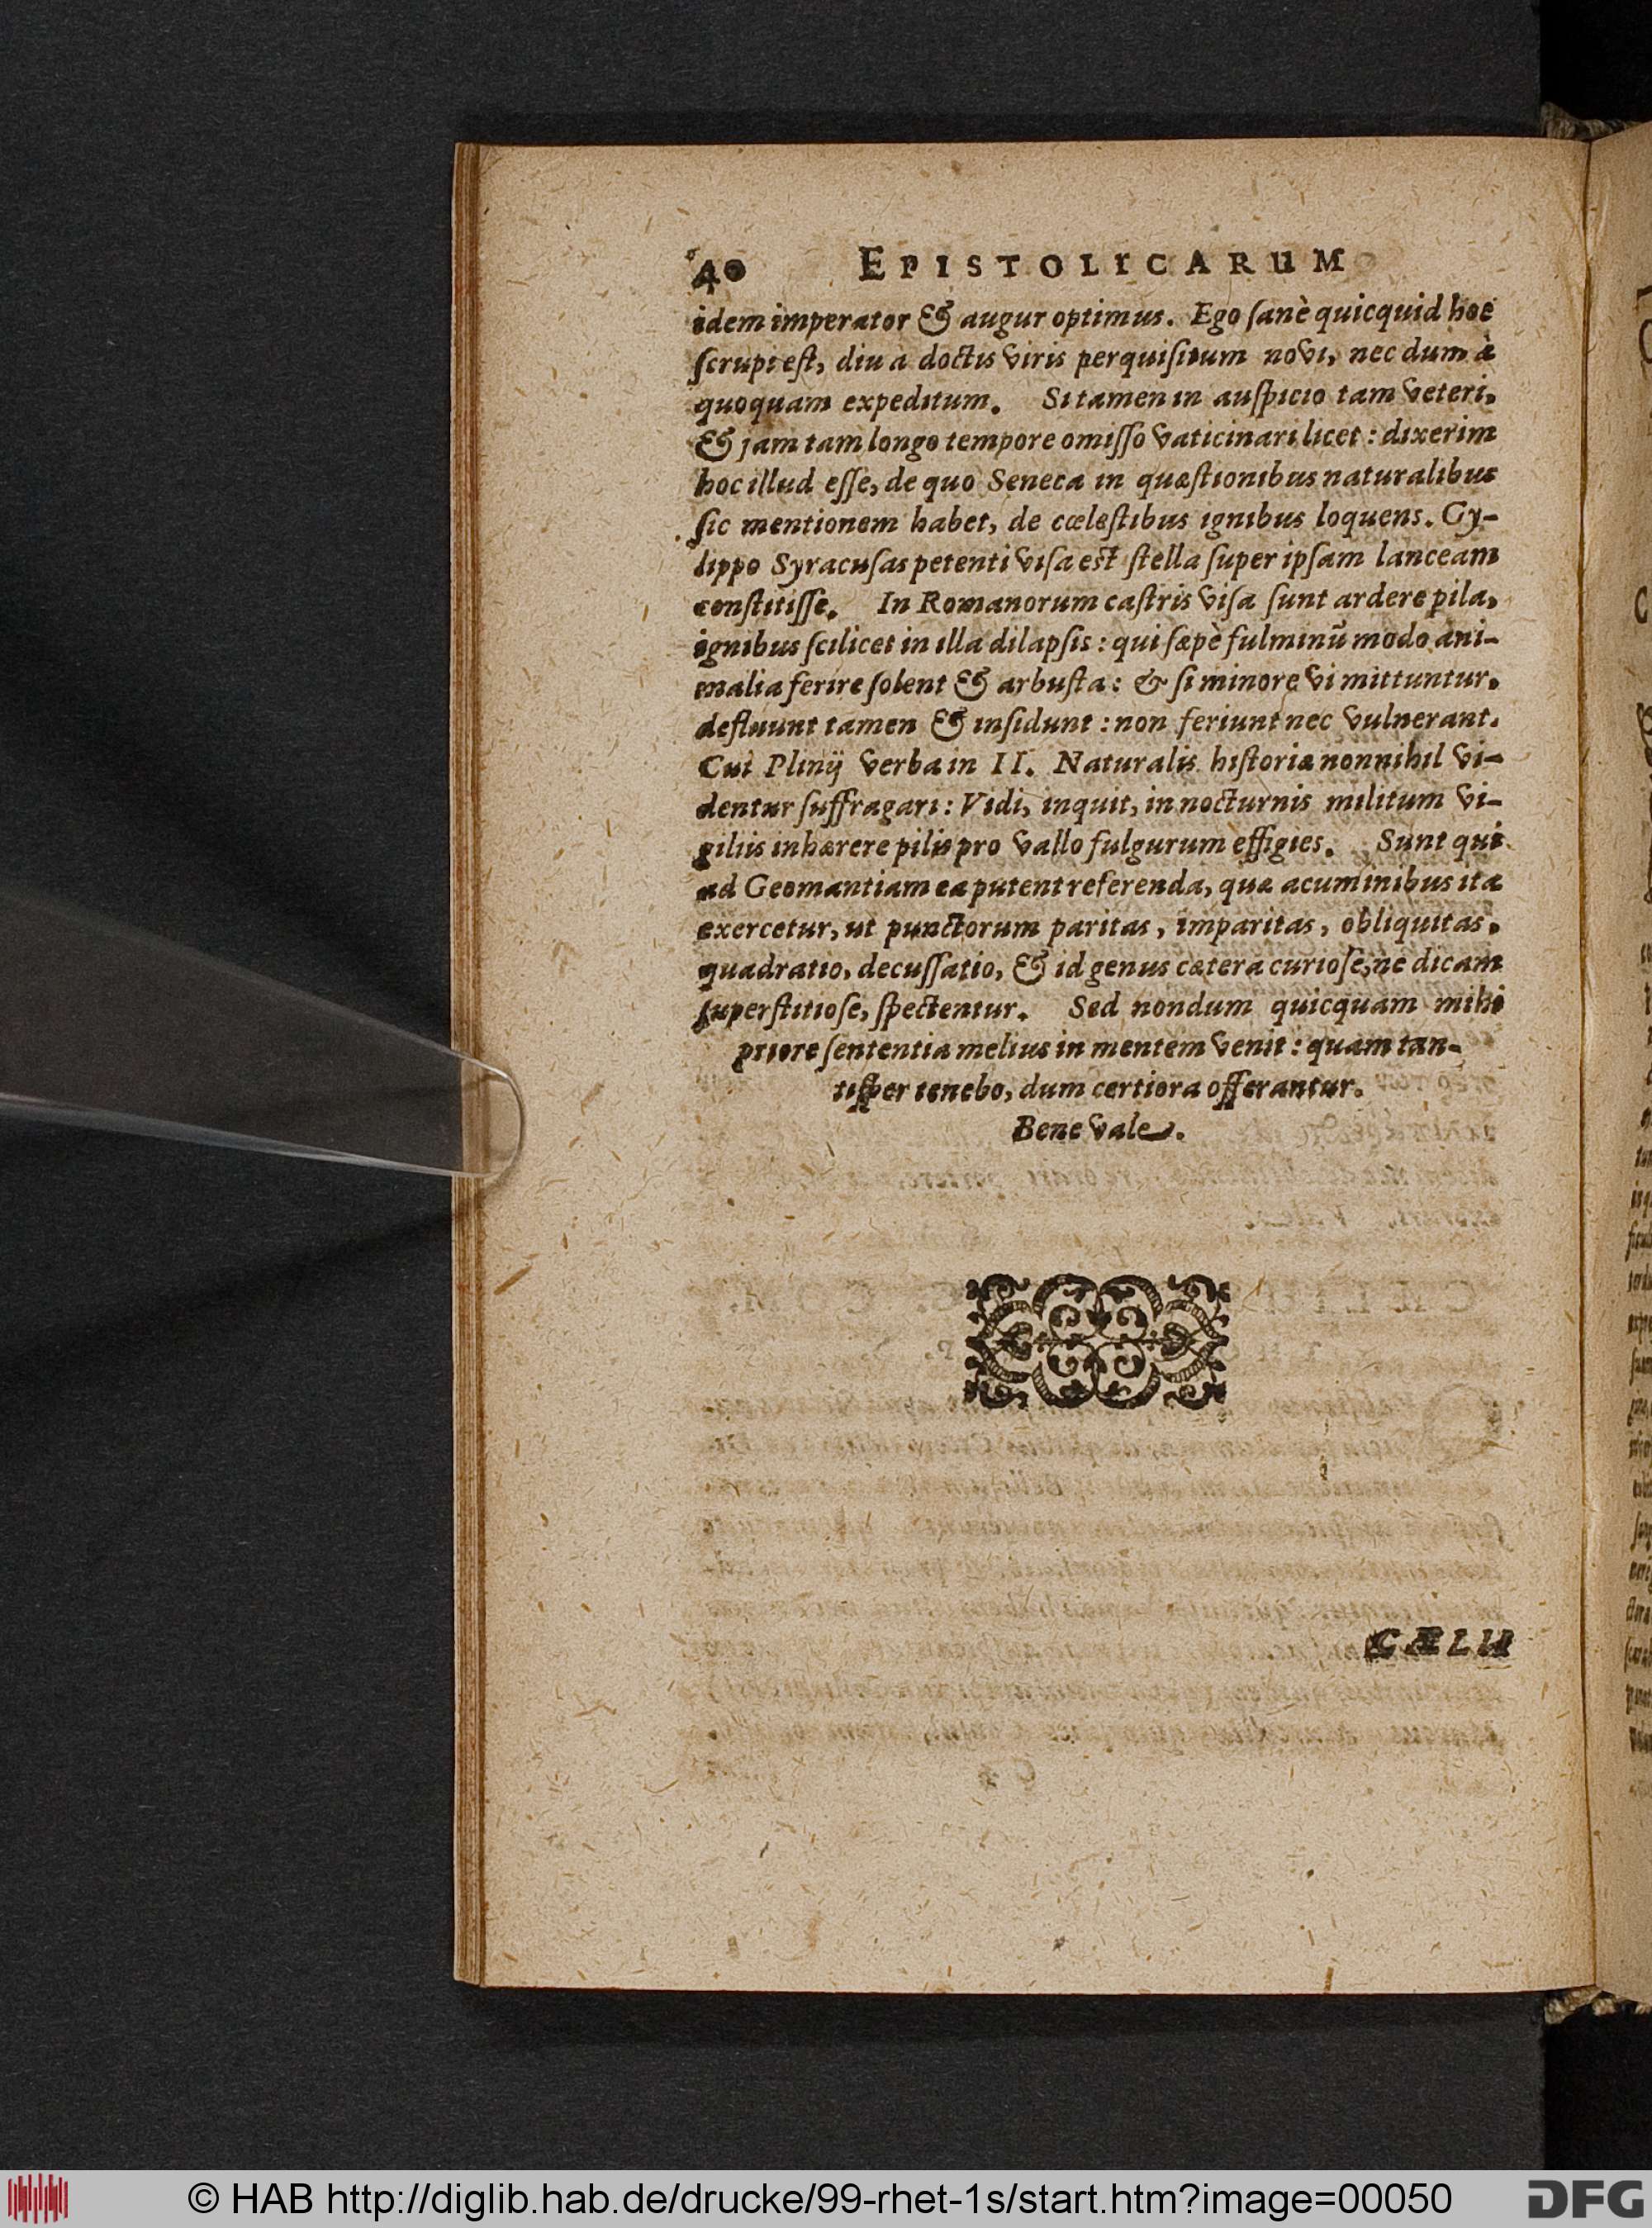 40 EPISTOLICARUM
idem imperator & augur optimus. Ego ſanè quicquid hoc
ſcrupi eſt, diu à doctis viris perquiſitum novi, nec dum à
quoquam expeditum. Si tamen in auſpicio tam veteri,
& jam tam longo tempore omiſſo vaticinari licet: dixerim
hoc illud eſſe, de quo Seneca in quæſtionibus naturalibus
ſic mentionem habet, de cæleſtibus ignibus loquens. Gy-
lippo Syracuſas petenti viſa est ſtella ſuper ipſam lanceam
conſtitiſſe. In Romanorum caſtris viſa ſunt ardere pila,
ignibus ſcilicet in illa dilapſis: qui ſæpè fulminũ modo ani-
malia ferire ſolent & arbuſta: & ſi minore vi mittuntur,
defluunt tamen & inſidunt: non feriunt nec vulnerant.
Cui Plinij verba in II. Naturalis hiſtoriæ nonnihil vi-
dentur ſuffragari: Vidi, inquit, in nocturnis militum vi-
giliis inhærere pilis pro vallo fulgurum effigies. Sunt qui
ad Geomantiam ea putent referenda, quæ acuminibus ita
exercetur, ut punctorum paritas, imparitas, obliquitas,
quadratio, decuſſatio, & id genus cætera curioſe, ne dicam
ſuperſtitioſe, ſpectentur. Sed nondum quicquam mihi
priore ſententia melius in mentem venit: quam tan-
tiſper tenebo, dum certiora offerantur.
Bene vale.
CÆLII
© HAB http://diglib.hab.de/drucke/99-rhet-1s/start.htm?image=00050
DFG